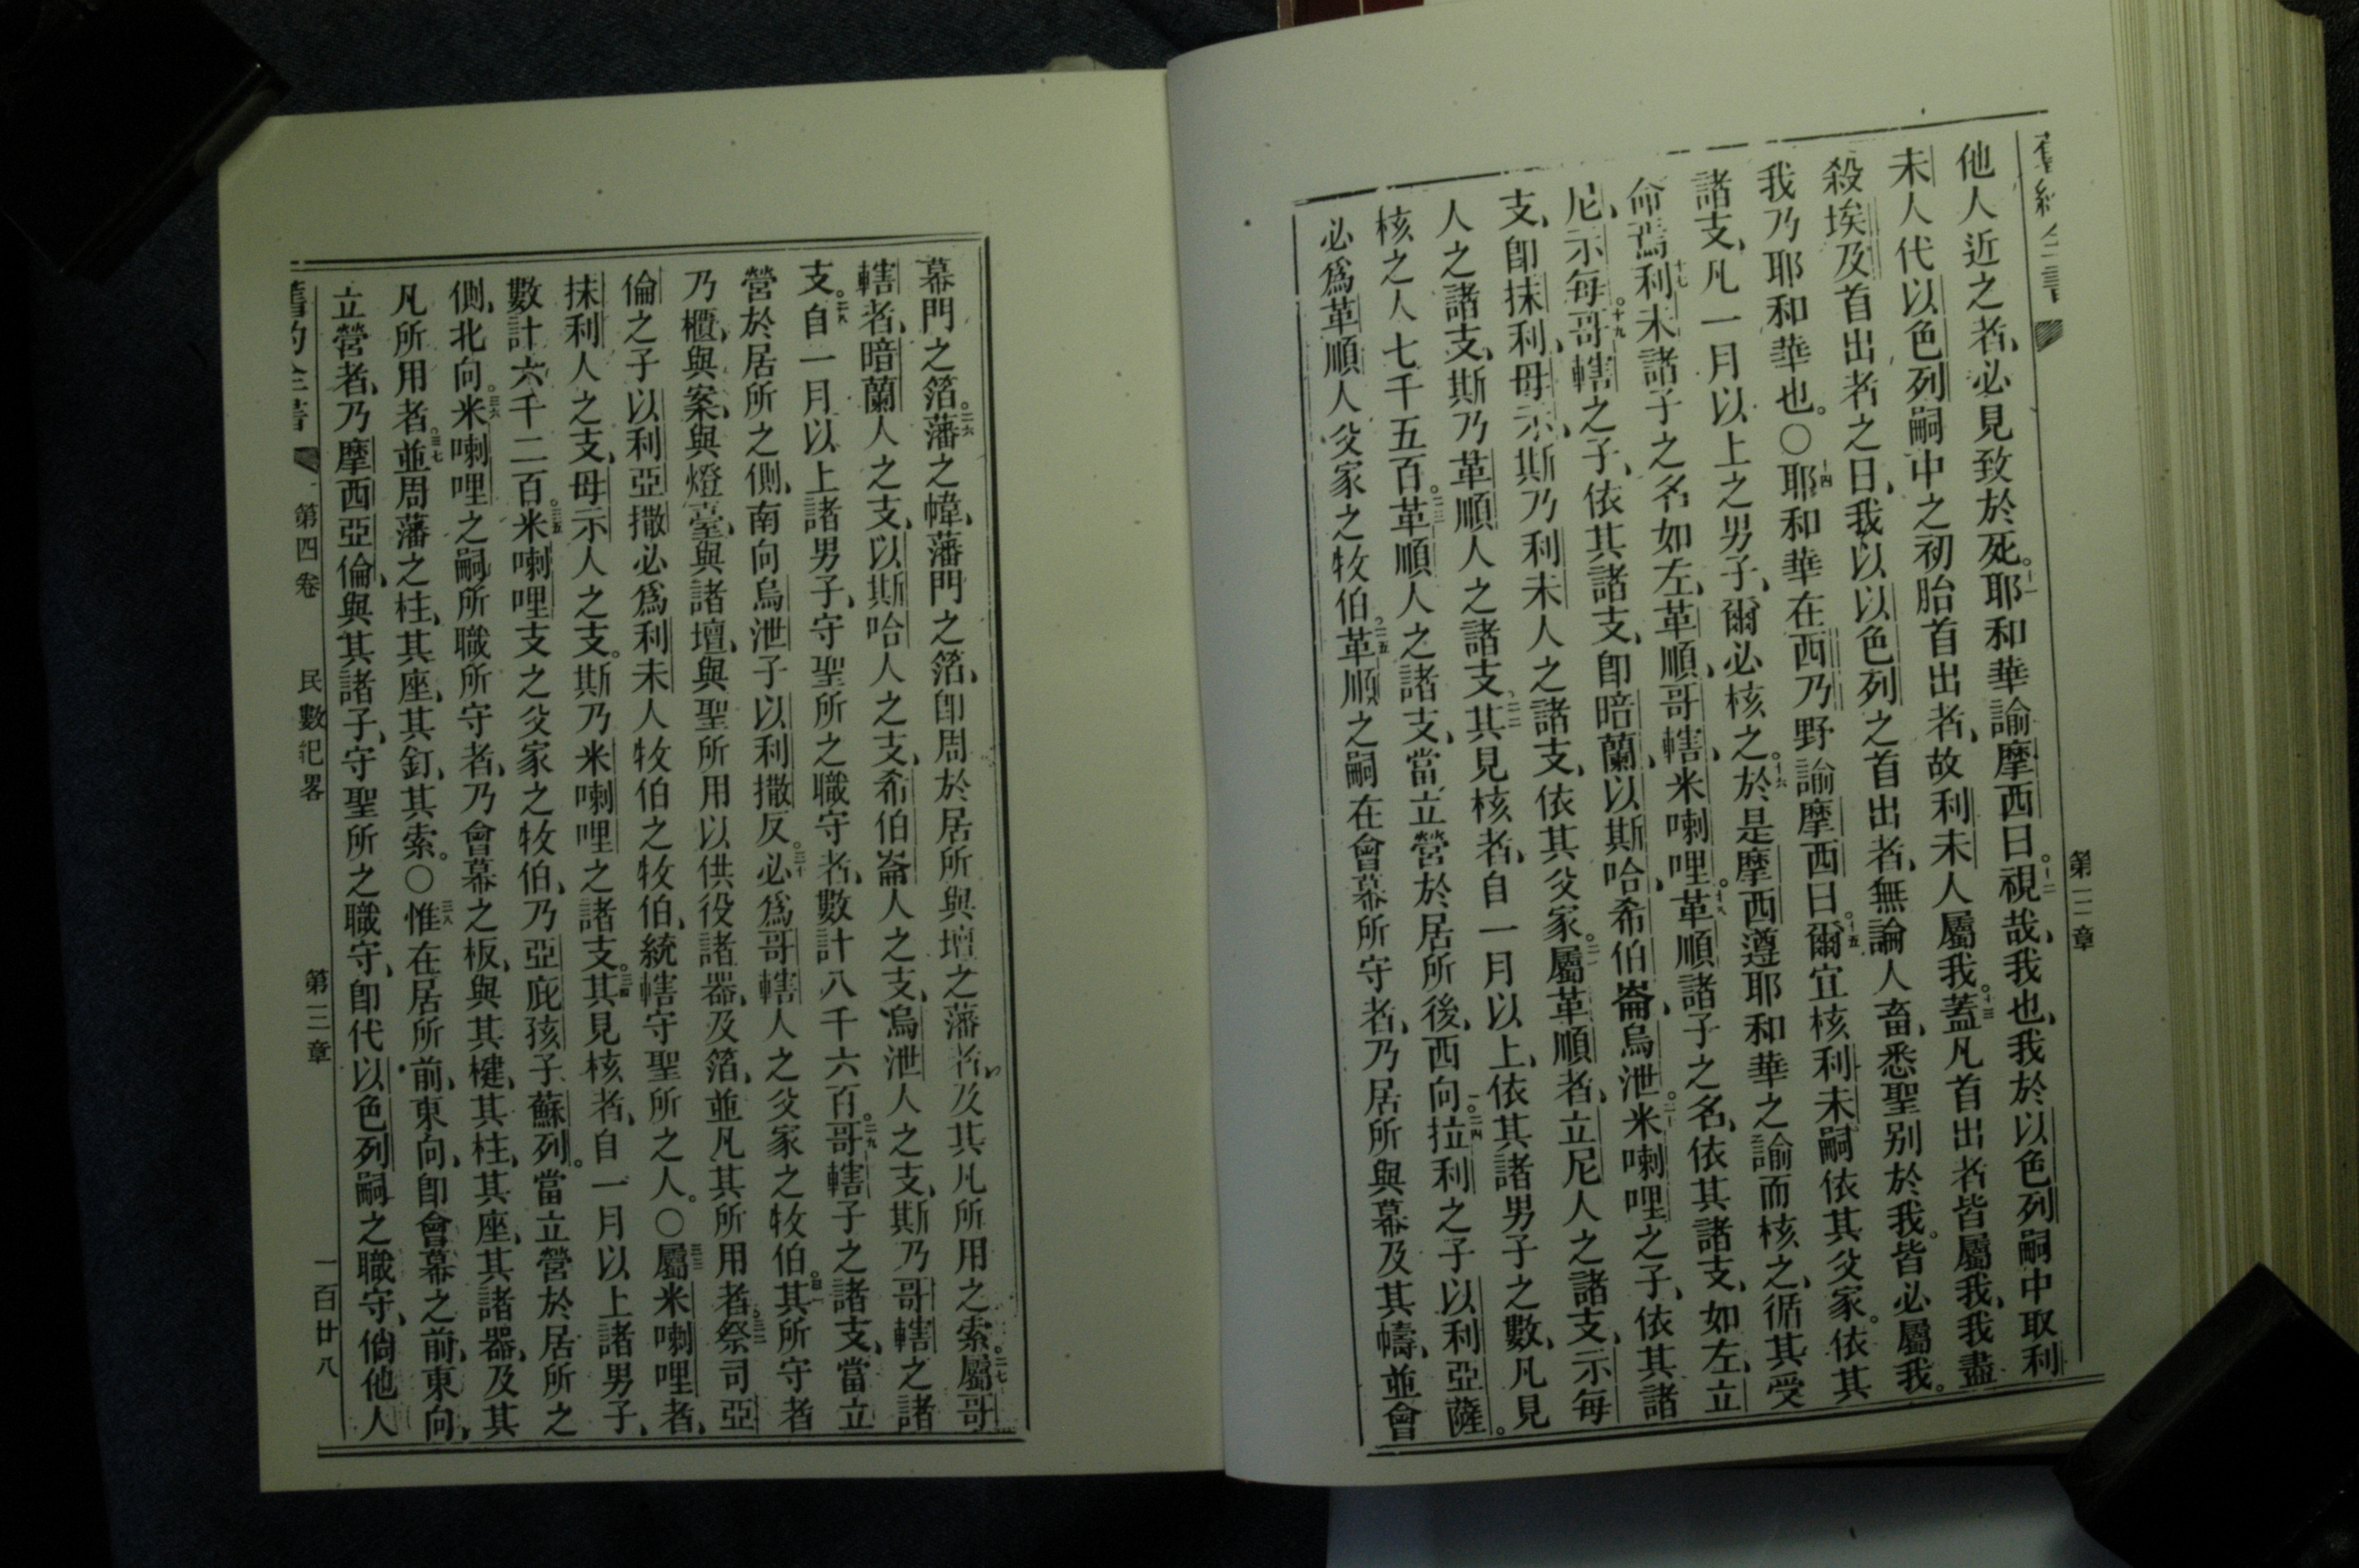 第三章
他人近之者、必見致於死。十一耶和華諭摩西曰。十二視哉、我也、我於以色列嗣中取利
未人代以色列嗣中之初胎首出者、故利未人屬我。十三蓋凡首出者皆屬我、我盡
殺埃及首出者之日、我以以色列之首出者、無論人畜、悉聖別於我。皆必屬我。
我乃耶和華也。〇十四耶和華在西乃野諭摩西曰。十五爾宜核利未嗣依其父家。依其
諸支、凡一月以上之男子、爾必核之。十六於是摩西遵耶和華之諭而核之、循其受
命焉。十七利未諸子之名如左、革順、哥轄、米喇哩。十八革順諸子之名、依其諸支、如左、立
尼、示每。十九哥轄之子、依其諸支、卽暗蘭、以斯哈、希伯崙、烏泄。二十米喇哩之子、依其諸
支、卽抹利、母示、斯乃利未人之諸支、依其父家。二一屬革順者、立尼人之諸支、示每
人之諸支、斯乃革順人之諸支。二二其見核者、自一月以上、依其諸男子之數、凡見
核之人七千五百。二三革順人之諸支、當立營於居所後、西向。二四拉利之子以利亞薩。
必爲革順人父家之牧伯。二五革順之嗣在會幕所守者、乃居所與幕及其幬、並會
幕門之箔。二六藩之幃、藩門之箔、卽周於居所與壇之藩者、及其凡所用之索。二七屬哥
轄者、暗蘭人之支、以斯哈人之支、希伯崙人之支、烏泄人之支、斯乃哥轄之諸
支。二八自一月以上諸男子、守聖所之職守者、數計八千六百。二九哥轄子之諸支、當立
營於居所之側、南向。烏泄子以利撒反。三十必爲哥轄人之父家之牧伯。三一其所守者
乃櫃、與案、與燈臺、與諸壇、與聖所用以供役諸器、及箔、並凡其所用者。三二祭司亞
倫之子以利亞撒必爲利未人牧伯之牧伯、統轄守聖所之人。〇三三屬米喇哩者、
抹利人之支、母示人之支。斯乃米喇哩之諸支。三四其見核者、自一月以上諸男子、
數計六千二百。三五米喇哩支之父家之牧伯、乃亞庇孩子蘇列。當立營於居所之
側、北向。三六米喇哩之嗣所職所守者、乃會幕之板、與其楗、其柱、其座、其諸器、及其
凡所用者。三七並周藩之柱、其座、其釘、其索。〇三八惟在居所前、東向、卽會幕之前、東向、
立營者、乃摩西亞倫、與其諸子、守聖所之職守、卽代以色列嗣之職守、倘他人
舊約全書 第四卷 民數紀畧 第三章 一百廿八